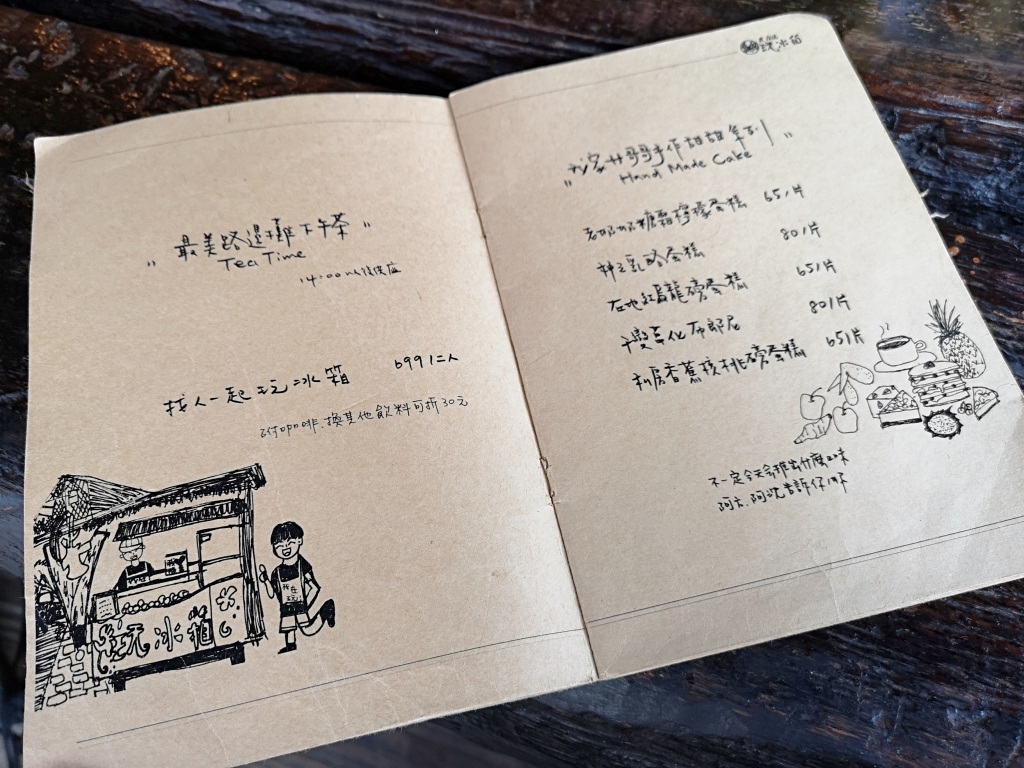 "最美路邊攤下午茶"
Tea Time
14:00以後供應
找人一起玩冰箱 699/二人
附咖啡.換其他飲料可折30元
玩冰箱
玩冰箱
哥哥手作甜甜系列"
Hand Made Cake
老奶奶糖霜檸檬蛋糕 65/片
乳酪蛋糕 80/片
在地紅烏龍磅蛋糕 65/片
布郎尼 80/片
私房香蕉核桃磅蛋糕 65/片
不一定今天會推出什麼口味
告訴你那